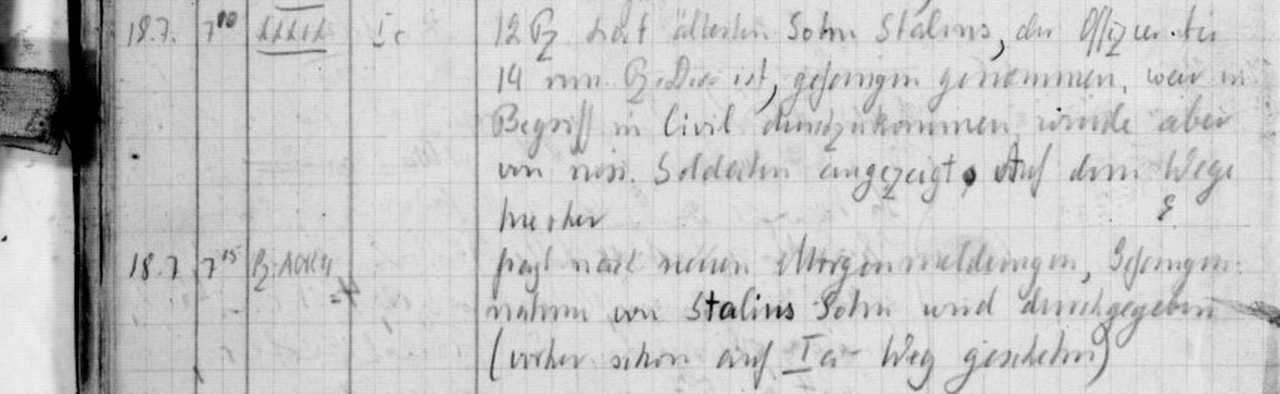 18.7. 7⁰⁰ XXXIX Ic 12 Pz hat ältesten Sohn Stalins, der Offizier bei
14 russ. Pz. Div. ist, gefangen genommen, war im
Begriff in Civil durchzukommen wurde aber
von russ. Soldaten angezeigt. Auf dem Wege
hierher
18.7 7¹⁵ Pz. AOK 4 fragt nach neuen Morgenmeldungen, Gefangen-
nahme von Stalins Sohn wird durchgegeben
(vorher schon auf Ia-Weg geschehen)